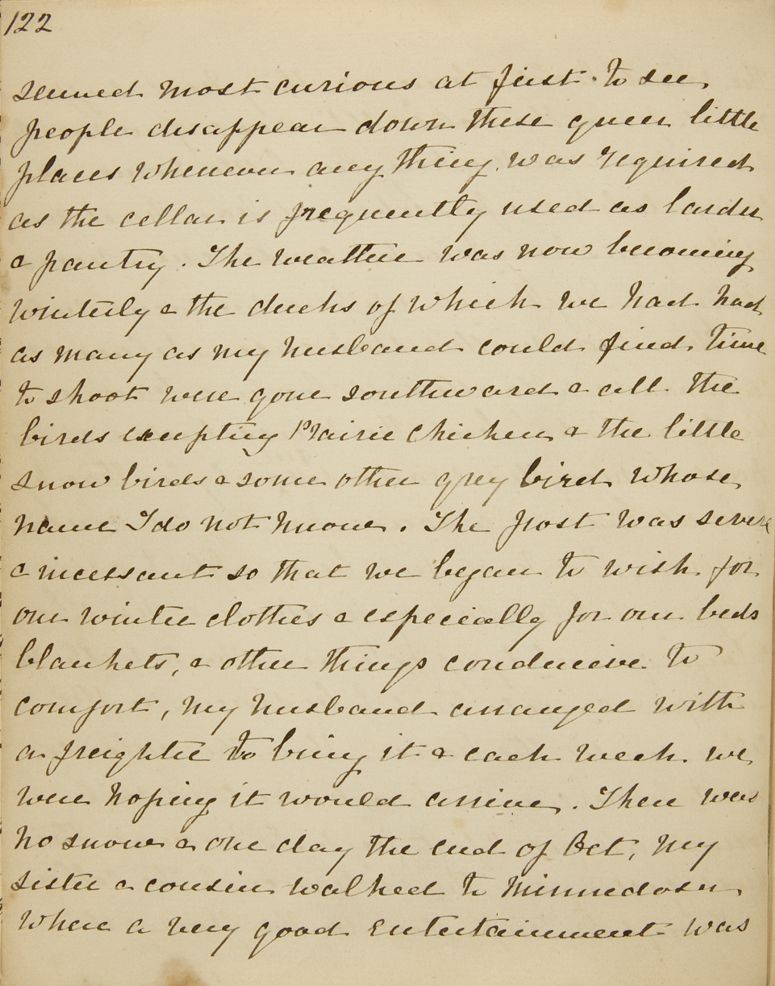 122
seemed most curious at first to see
people disappear down these queer little
places whenever any thing was required
as the cellar is frequently used as larder
& pantry. The weather was now becoming
winterly & the ducks of which we had had
as many as my husband could find time
to shoot were gone southward & all the
birds excepting Prairie Chicken & the little
snow birds & some other grey bird whose
name I do not know. The frost was severe
& incessant so that we began to wish for
our winter clothes & especially for our beds
blankets, & other things conducive to
comfort, my husband arranged with
a freighter to bring it & each week we
were hoping it would arrive. There was
no snow & one day the end of Oct, my
sister & cousin walked to Minnedosa
where a very good Entertainment was